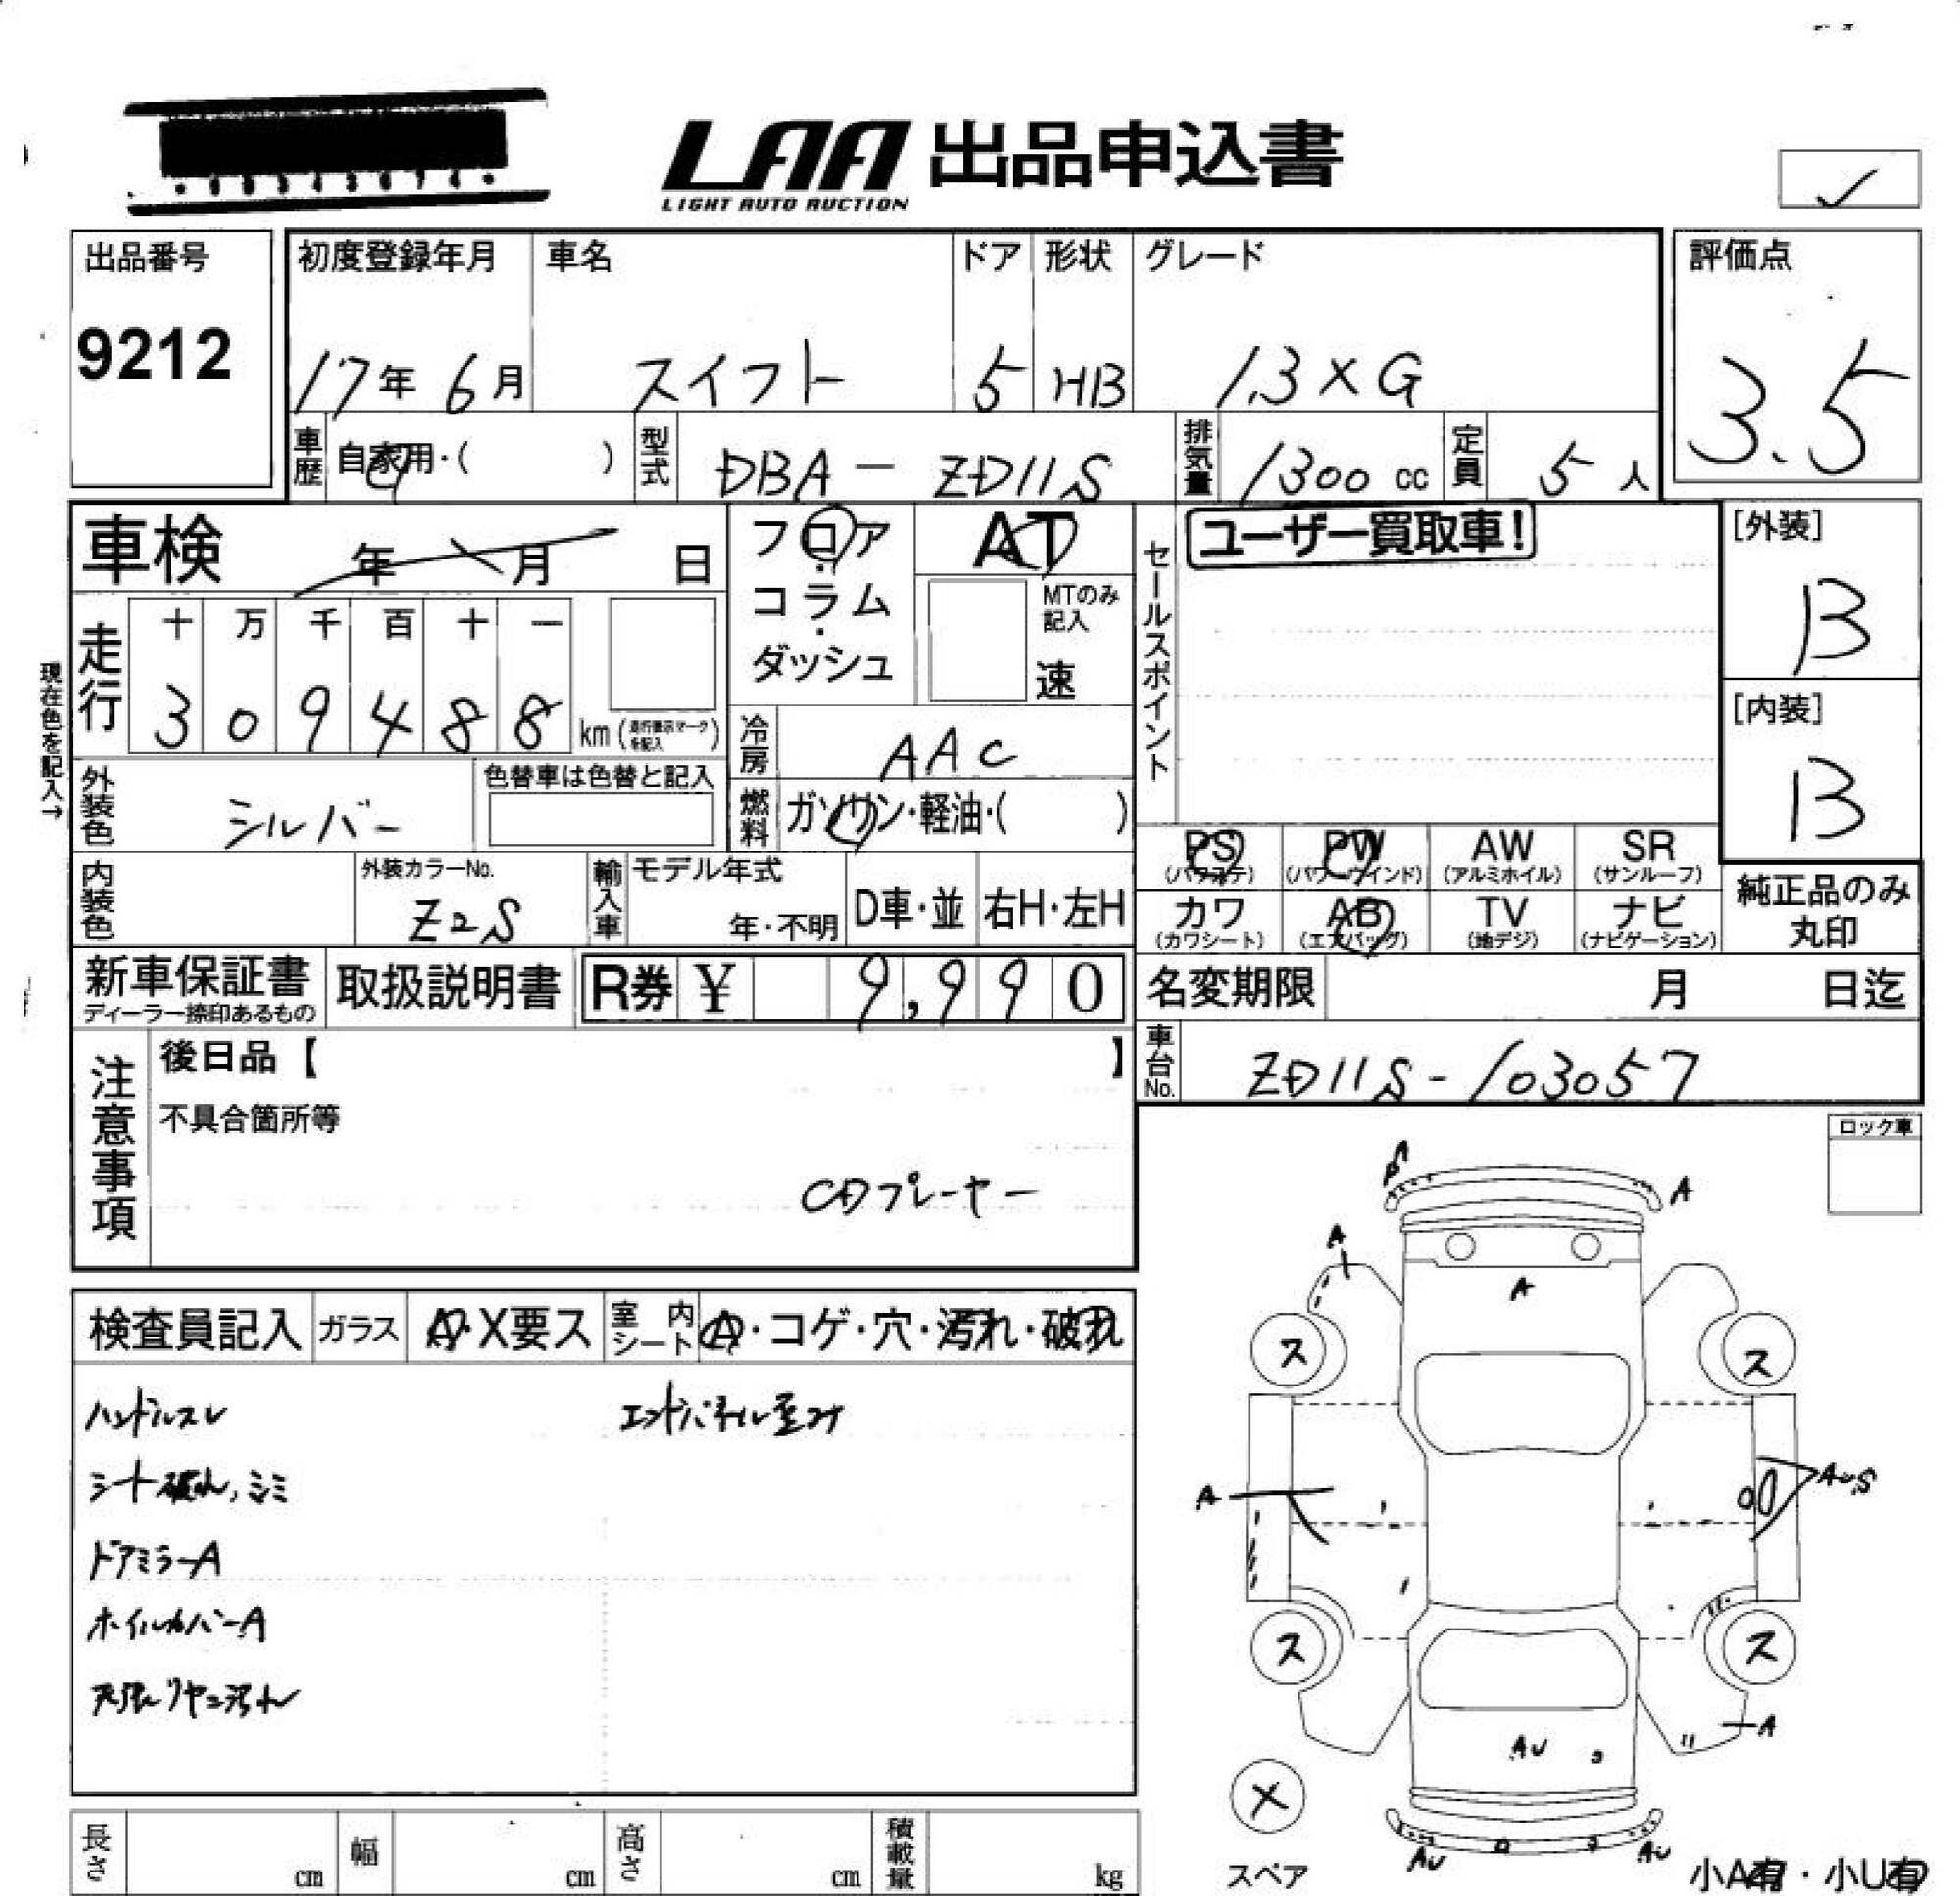 LAA 出品申込書
LIGHT AUTO AUCTION
出品番号
9212
初度登録年月
17年 6月
車名
スイフト
ドア
5
形状
HB
グレード
1.3 X G
評価点
3.5
車歴
自家用・( )
型式
DBA - ZD11S
排気量
1300 cc
定員
5 人
車検 年 月 日
フロア
コラム
ダッシュ
AT
MTのみ
記入
速
セールスポイント
ユーザー買取車!
[外装]
B
[内装]
B
現在色を記入→
走行
十 万 千 百 十 一
3 0 9 4 8 8
km
冷房
AAC
外装色
シルバー
色替車は色替と記入
燃料
ガソリン・軽油・( )
PS
(パワステ)
PW
(パワーウインド)
AW
(アルミホイル)
SR
(サンルーフ)
カワ
(カワシート)
AB
(エアバッグ)
TV
(地デジ)
ナビ
(ナビゲーション)
純正品のみ
丸印
内装色
外装カラーNo.
Z2S
輸入車
モデル年式
年・不明
D車・並
右H・左H
新車保証書
ディーラー捺印あるもの
取扱説明書
R券 ¥ 9,990
名変期限 月 日迄
車台No.
ZD11S-103057
注意事項
後日品【 】
不具合箇所等
CDプレーヤー
ロック車
検査員記入
ガラス
A・X要ス
室内シート
A・コゲ・穴・汚れ・破れ
ハンドルスレ
エンドパネル歪み
シート破れ、シミ
ドアミラーA
ホイルカバーA
天張リヤニ汚れ
S
A
A
A
ス
ス
A
AUS
ス
ス
A
AU
X
AU
AU
スペア
小A有・小U有
長さ
cm
幅
cm
高さ
cm
積載量
kg